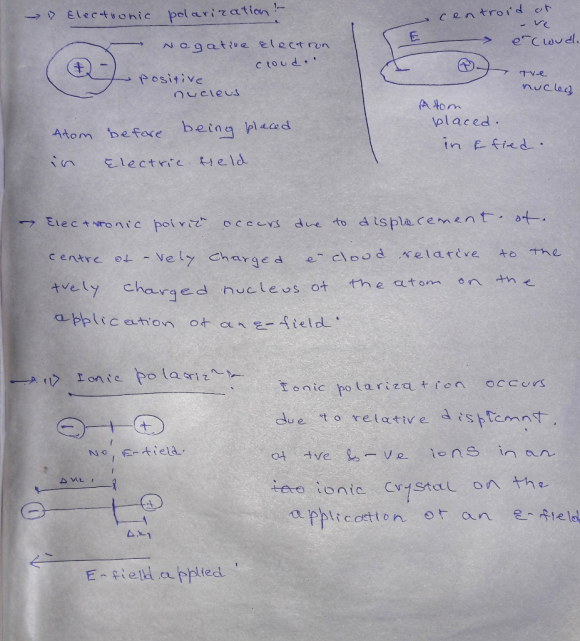 → i) Electronic polarization :-
Nagative electron
cloud..
+ -
positive
nucleus
Atom before being placed
in Electric field
centroid of
-ve
e⁻cloud.
E
-
+
+ve
nucleus
Atom
placed.
in E field.
→ Electronic polrizⁿ occurs due to displacement. of.
centre of -vely charged e⁻cloud relative to the
+vely charged nucleus of the atom on the
application of an E-field.
→ ii) Ionic polarizⁿ :-
- +
No, E-field.
- +
E-field applied
Ionic polarization occurs
due to relative displcmnt.
of +ve & -ve ions in an
ionic crystal on the
application of an E-field